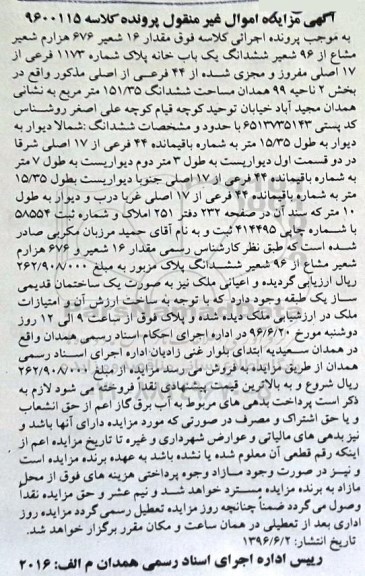 آگهی مزایده اموال غیر منقول پرونده کلاسه ۹۶۰۰۱۱۵
به موجب پرونده اجرائی کلاسه فوق مقدار ۱۶ شعیر ۶۷۶ هزارم شعیر
مشاع از ۹۶ شعیر ششدانگ یک باب خانه پلاک شماره ۱۱۷۳ فرعی از
۱۷ اصلی مفروز و مجزی شده از ۴۴ فرعی از اصلی مذکور واقع در
بخش ۲ ناحیه ۹۹ همدان مساحت ششدانگ ۱۵۱/۳۵ متر مربع به نشانی
همدان مجید آباد خیابان توحید کوچه قیام کوچه علی اصغر روشناس
کد پستی ۶۵۱۳۷۳۵۱۴۳ با حدود و مشخصات ششدانگ :شمالا دیوار به
دیوار به طول ۱۵/۳۵ متر به شماره باقیمانده ۴۴ فرعی از ۱۷ اصلی شرقا
در دو قسمت اول دیواریست به طول ۳ متر دوم دیواریست به طول ۷ متر
به شماره باقیمانده ۴۴ فرعی از ۱۷ اصلی جنوبا دیواریست بطول ۱۵/۳۵
متر به شماره باقیمانده ۴۴ فرعی از ۱۷ اصلی غربا درب و دیوار به طول
۱۰ متر که سند آن در صفحه ۲۳۲ دفتر ۲۵۱ املاک و شماره ثبت ۵۸۵۵۴
با شماره چاپی ۴۱۴۴۹۵ ثبت و به نام آقای حمید مرزبان مکربی صادر
شده است که طبق نظر کارشناس رسمی مقدار ۱۶ شعیر و ۶۷۶ هزارم
شعیر مشاع از ۹۶ شعیر ششدانگ پلاک مزبور به مبلغ ۲۶۲/۹۰۸/۰۰۰
ریال ارزیابی گردیده و اعیانی ملک نیز به صورت یک ساختمان قدیمی
ساز یک طبقه وجود دارد که با توجه به ساخت ارزش آن و امتیازات
ملک در ارزشیابی ملک دیده شده و پلاک فوق از ساعت ۹ الی ۱۲ روز
دوشنبه مورخ ۹۶/۶/۲۰ در اداره اجرای احکام اسناد رسمی همدان واقع
در همدان سعیدیه ابتدای بلوار غنی زادیان اداره اجرای اسناد رسمی
همدان از طریق مزایده به فروش می رسد مزایده از مبلغ ۲۶۲/۹۰۸/۰۰۰
ریال شروع و به بالاترین قیمت پیشنهادی نقدا فروخته می شود لازم به
ذکر است پرداخت بدهی های مربوط به آب برق گاز اعم از حق انشعاب
و یا حق اشتراک و مصرف در صورتی که مورد مزایده دارای آنها باشد و
نیز بدهی های مالیاتی و عوارض شهرداری و غیره تا تاریخ مزایده اعم از
اینکه رقم قطعی آن معلوم شده یا نشده باشد به عهده برنده مزایده است
و نیز در صورت وجود مازاد وجوه پرداختی هزینه های فوق از محل
مازاد به برنده مزایده مسترد خواهد شد و نیم عشر و حق مزایده نقدا
وصول می گردد ضمنا چنانچه روز مزایده تعطیل رسمی گردد مزایده روز
اداری بعد از تعطیلی در همان ساعت و مکان مقرر برگزار خواهد شد.
تاریخ انتشار: ۱۳۹۶/۶/۲
رییس اداره اجرای اسناد رسمی همدان م الف: ۲۰۱۶